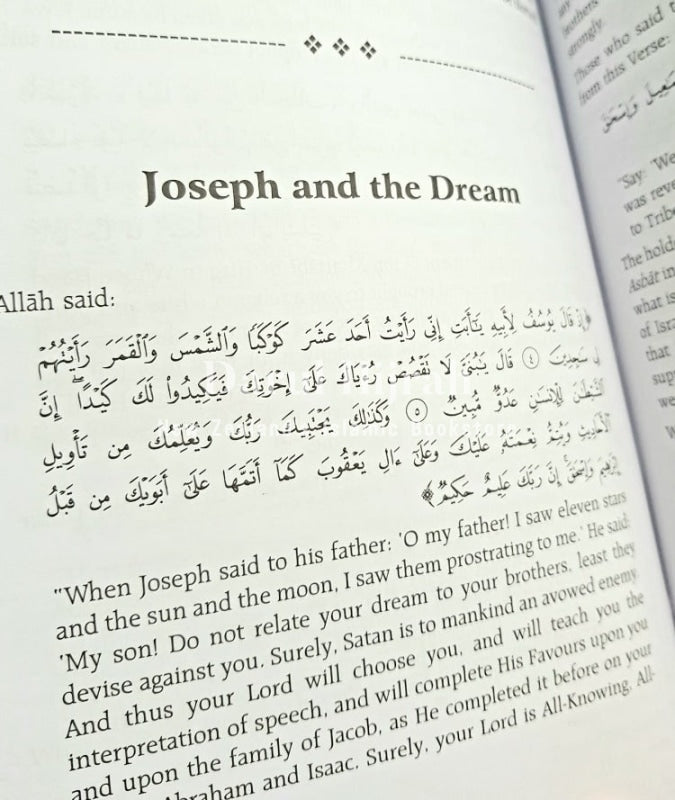 Joseph and the Dream
Allāh said:
﴿إِذْ قَالَ يُوسُفُ لِأَبِيهِ يَٰٓأَبَتِ إِنِّى رَأَيْتُ أَحَدَ عَشَرَ كَوْكَبًا وَٱلشَّمْسَ وَٱلْقَمَرَ رَأَيْتُهُمْ
لِى سَٰجِدِينَ ٤ قَالَ يَٰبُنَىَّ لَا تَقْصُصْ رُءْيَاكَ عَلَىٰٓ إِخْوَتِكَ فَيَكِيدُوا۟ لَكَ كَيْدًا ۖ إِنَّ
ٱلشَّيْطَٰنَ لِلْإِنسَٰنِ عَدُوٌّ مُّبِينٌ ٥ وَكَذَٰلِكَ يَجْتَبِيكَ رَبُّكَ وَيُعَلِّمُكَ مِن تَأْوِيلِ
ٱلْأَحَادِيثِ وَيُتِمُّ نِعْمَتَهُۥ عَلَيْكَ وَعَلَىٰٓ ءَالِ يَعْقُوبَ كَمَآ أَتَمَّهَا عَلَىٰٓ أَبَوَيْكَ مِن قَبْلُ
إِبْرَٰهِيمَ وَإِسْحَٰقَ ۚ إِنَّ رَبَّكَ عَلِيمٌ حَكِيمٌ﴾
"When Joseph said to his father: 'O my father! I saw eleven stars
and the sun and the moon, I saw them prostrating to me.' He said:
'My son! Do not relate your dream to your brothers, least they
devise against you. Surely, Satan is to mankind an avowed enemy.
And thus your Lord will choose you, and will teach you the
interpretation of speech, and will complete His Favours upon you
and upon the family of Jacob, as He completed it before on your
Abraham and Isaac. Surely, your Lord is All-Knowing, All-
brothers
strongly.
Those who said
from this Verse:
"Say: "We
was reve
to Tribe
The hold
Asbāt in
what is
of Isra
that
sup
we